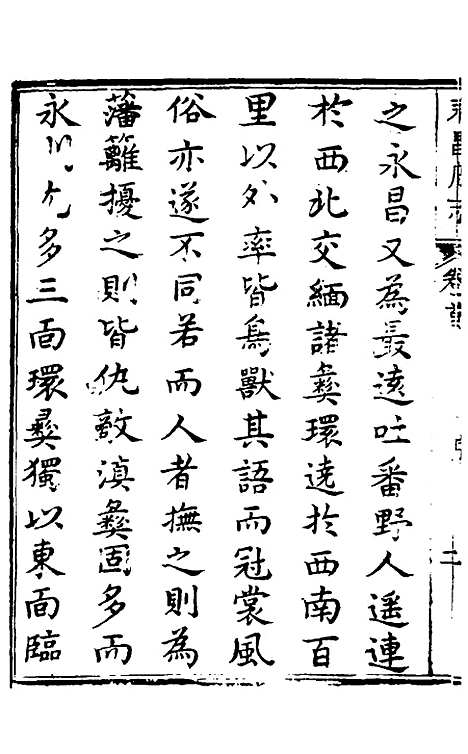 之永昌又為最遠吐番野人遥連
於西北交緬諸彝環遶於西南百
里以外率皆鳥獸其語而冠裳風
俗亦遂不同若而人者撫之則為
藩籬擾之則皆仇敵滇彝固多而
永昌尤多三面環彝獨以東面臨